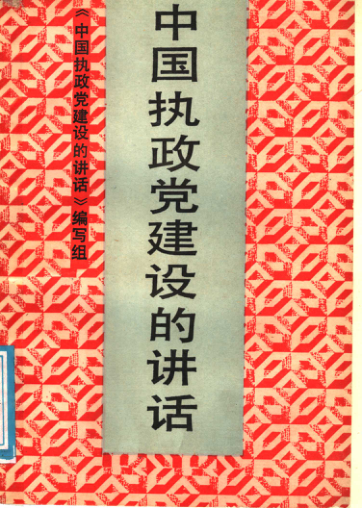 中国执政党建设的讲话
《中国执政党建设的讲话》编写组